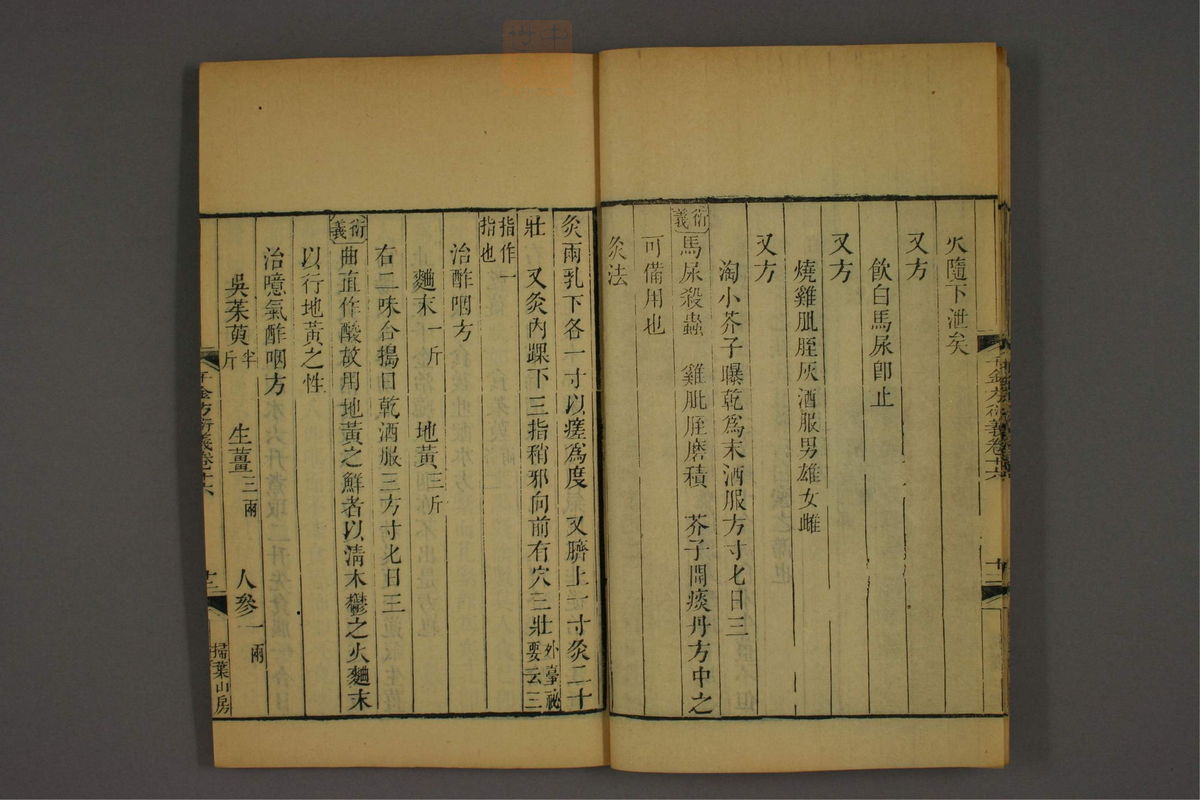 火隨下泄矣
又方
飲白馬尿卽止
又方
燒雞肶胵灰酒服男雄女雌
又方
淘小芥子曝乾爲末酒服方寸匕日三
衍義
馬尿殺蟲 雞肶胵磨積 芥子開痰丹方中之
可備用也
灸法
灸兩乳下各一寸以瘥爲度 又臍上一寸灸二十
壯 又灸內踝下三指稍邪向前有穴三壯 外臺祕
要云三
指作一
指也
治酢咽方
麯末一斤 地黃三斤
右二味合搗日乾酒服三方寸匕日三
衍義
曲直作酸故用地黃之鮮者以清木鬱之火麯末
以行地黃之性
治噫氣酢咽方
吳茱萸半斤 生薑三兩 人參一兩
千金方衍義卷十六
十二
掃葉山房